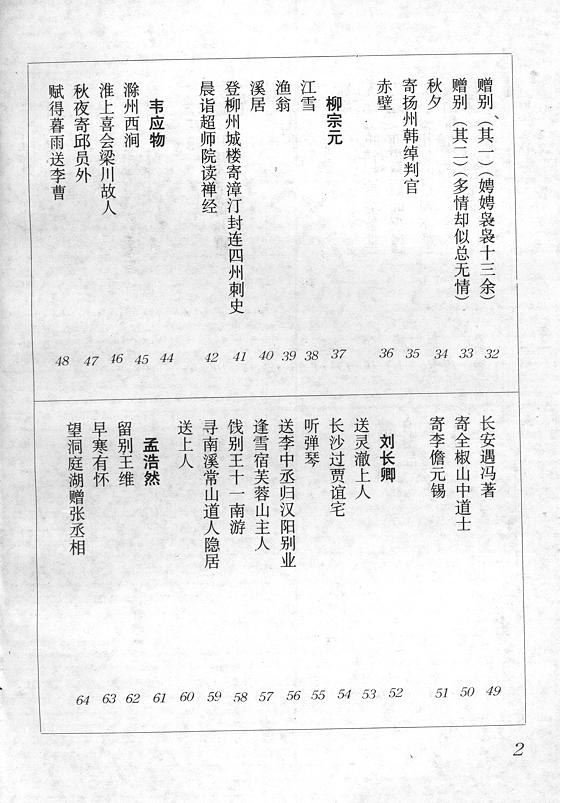 赠别（其一）（娉娉袅袅十三余） 32
赠别（其二）（多情却似总无情） 33
秋夕 34
寄扬州韩绰判官 35
赤壁 36
柳宗元 37
江雪 38
渔翁 39
溪居 40
登柳州城楼寄漳汀封连四州刺史 41
晨诣超师院读禅经 42
韦应物 44
滁州西涧 45
淮上喜会梁川故人 46
秋夜寄邱员外 47
赋得暮雨送李曹 48
长安遇冯著 49
寄全椒山中道士 50
寄李儋元锡 51
刘长卿 52
送灵澈上人 53
长沙过贾谊宅 54
听弹琴 55
送李中丞归汉阳别业 56
逢雪宿芙蓉山主人 57
饯别王十一南游 58
寻南溪常山道人隐居 59
送上人 60
孟浩然 61
留别王维 62
早寒有怀 63
望洞庭湖赠张丞相 64
2